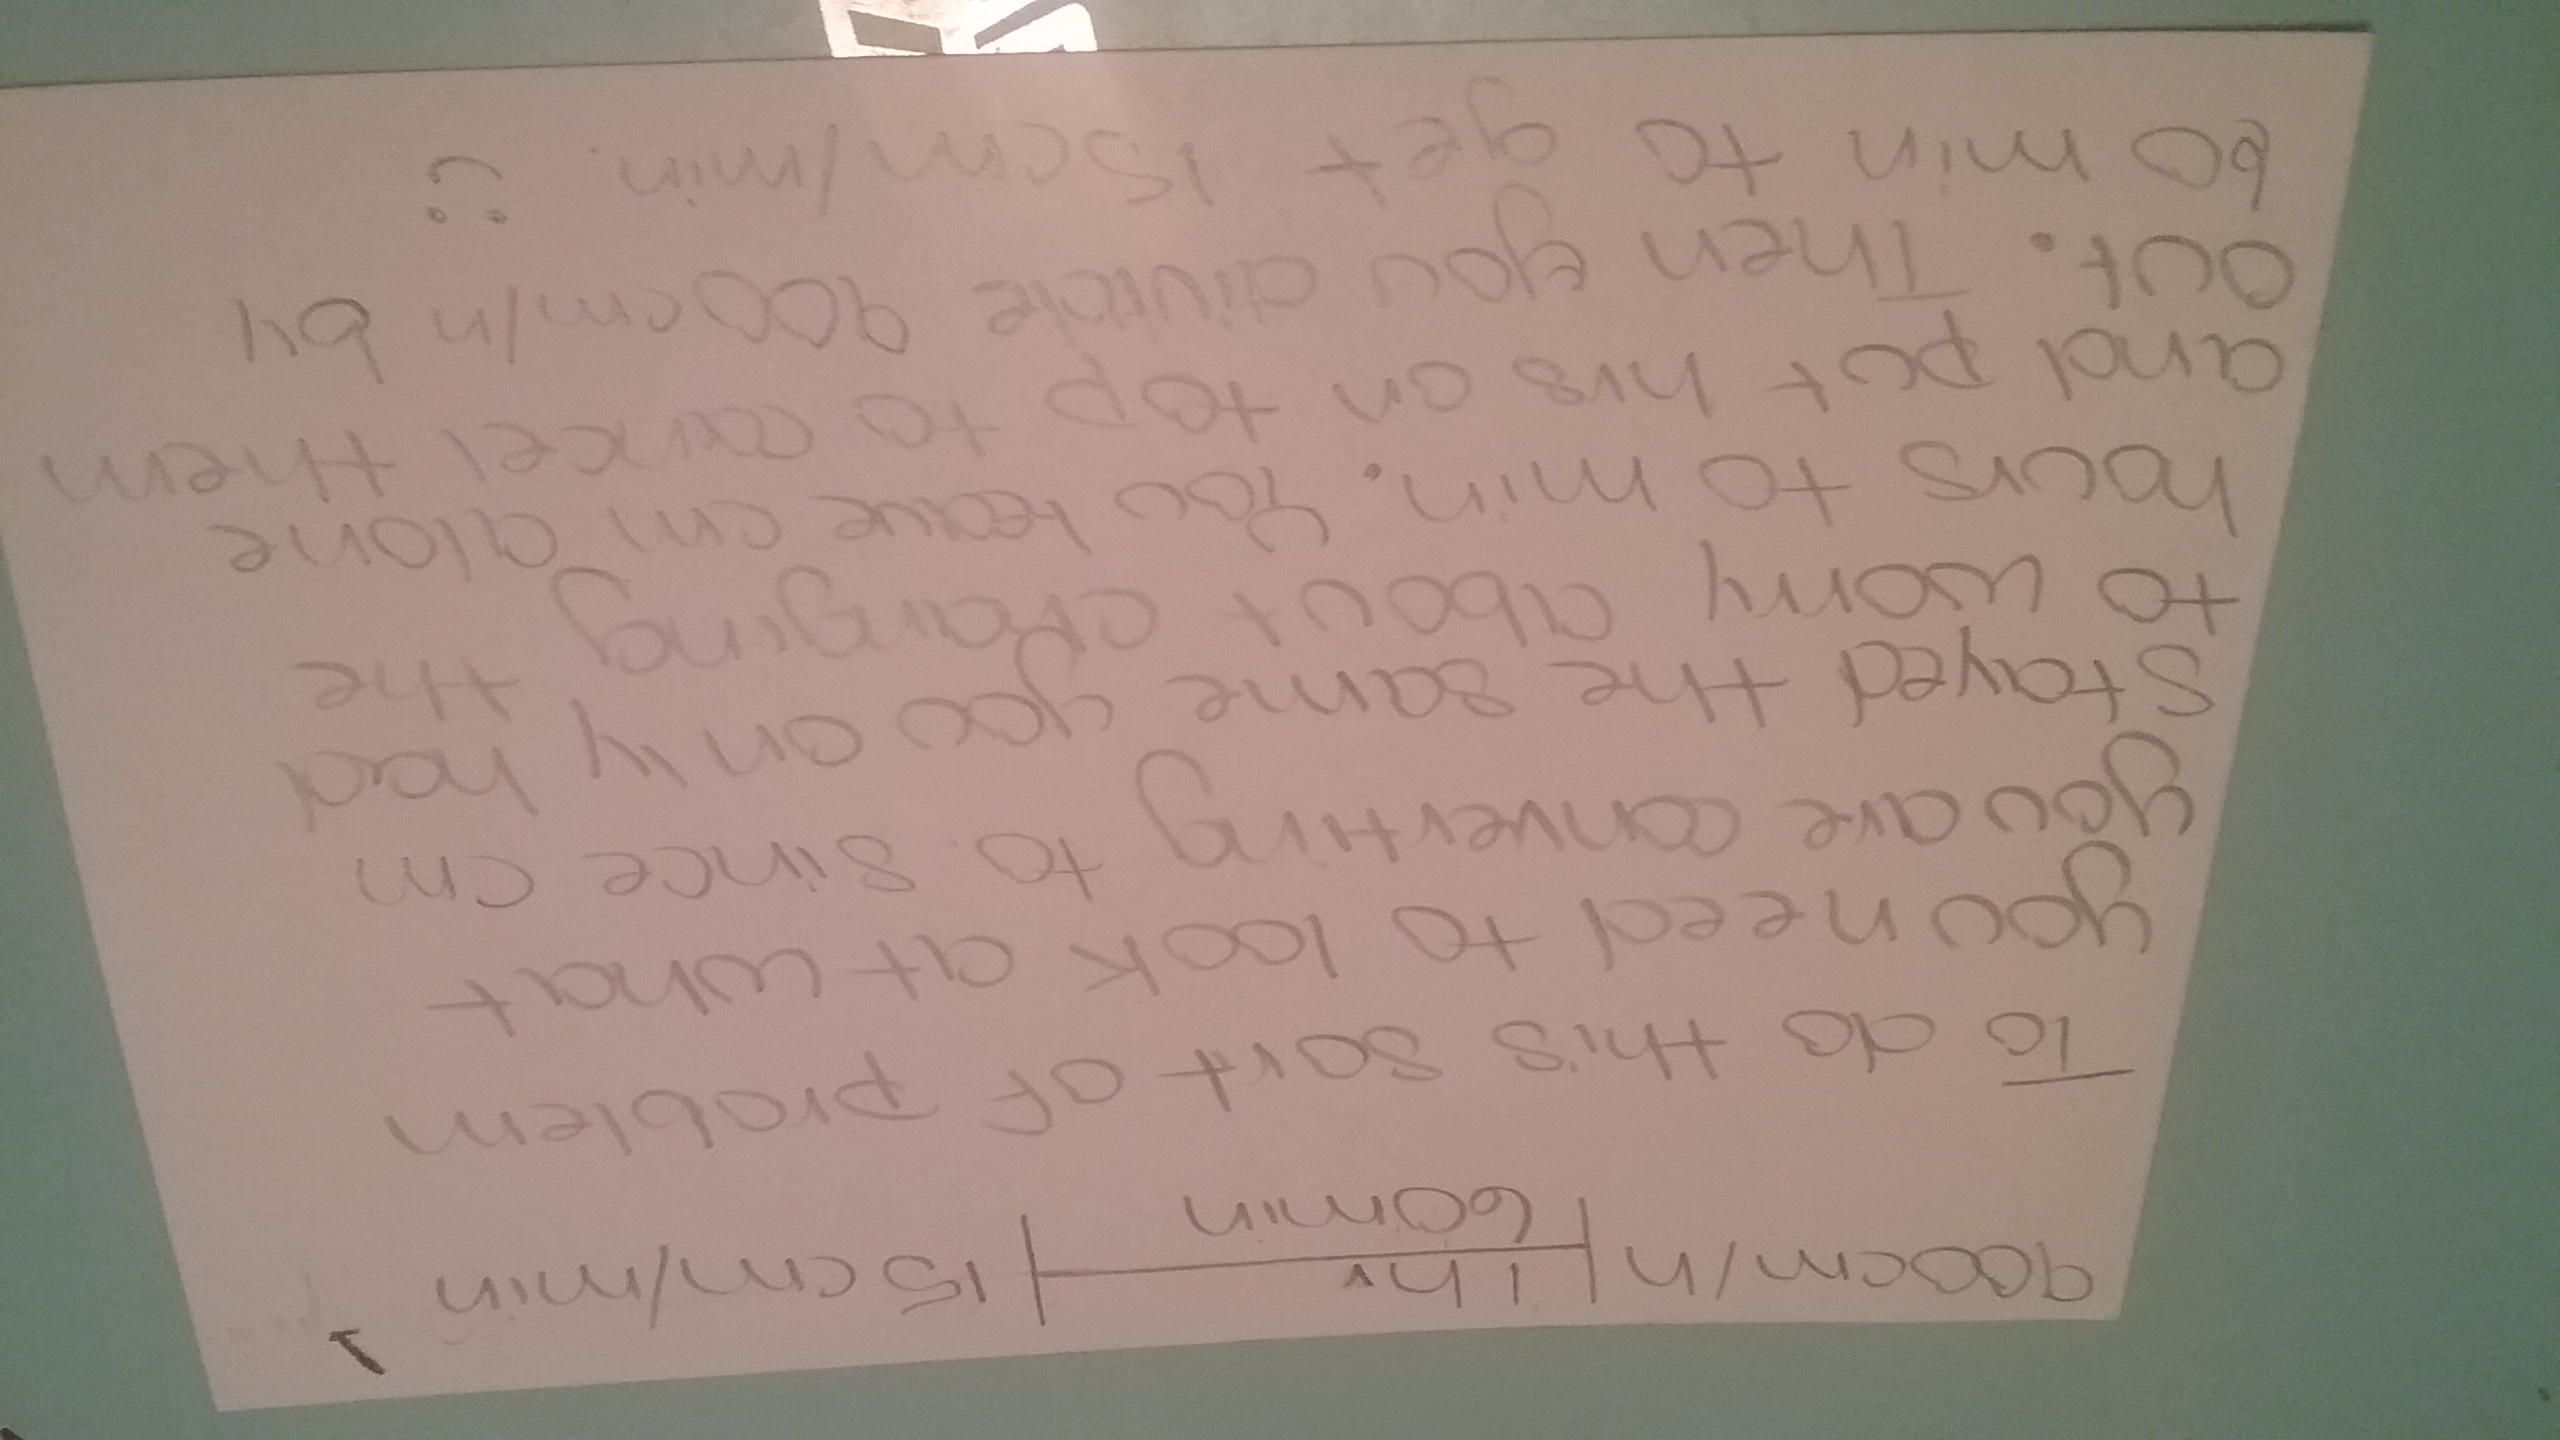 900cm/h | 1 hr | 15 cm/min
60min
To do this sort of problem
you need to look at what
you are converting to. Since cm
stayed the same you only had
to worry about changing the
hours to min. You leave cm alone
and put hrs on top to cancel them
out. Then you divide 900cm/h by
60 min to get 15cm/min. :)